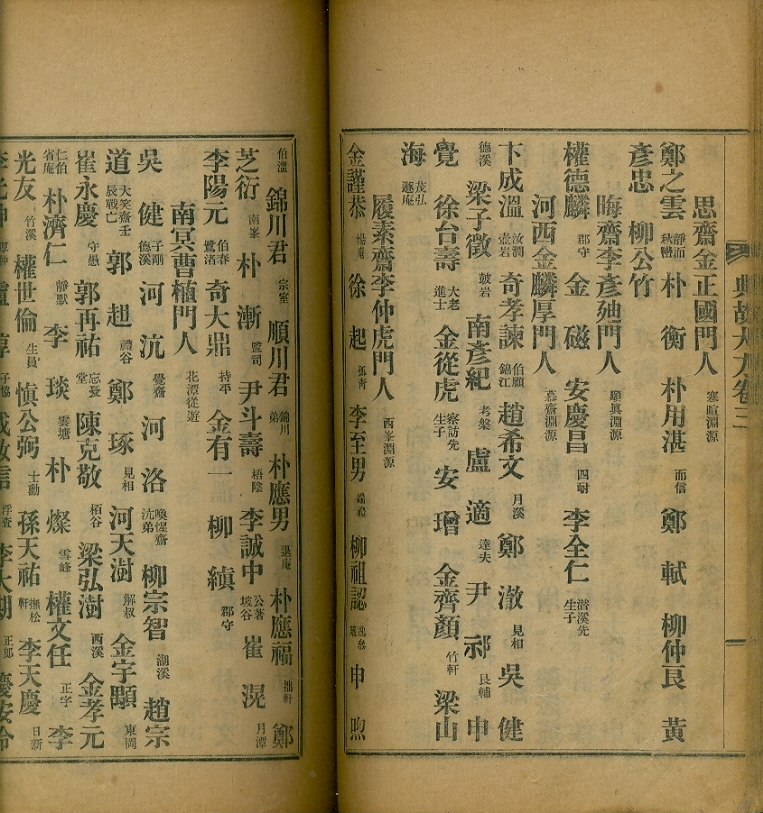 典故大方卷三
思齋金正國門人 寒暄淵源
鄭之雲 靜而 秋巒 朴衡 朴用湛 而信 鄭軾 柳仲艮 黃
彦忠 柳公竹
晦齋李彦廸門人 淵源
權德麟 郡守 金磁 安慶昌 四耐 李全仁 潛溪先生子
河西金麟厚門人 慕齋淵源
卞成溫 汝潤 壺岩 奇孝諫 伯顧 錦江 趙希文 月溪 鄭澈 見相 吳健
德溪 梁子徵 鼓岩 南彦紀 考槃 盧適 達夫 尹祁 艮輔 申
覺 徐台壽 大老 進士 金從虎 察訪先生子 安璔 金齊顏 竹軒 梁山
海 茂弘 遯庵
履素齋李仲虎門人 西峯淵源
金謹恭 惕庵 徐起 孤青 李至男 柳祖認 申㷜
伯溫 錦川君 宗室 順川君 錦川弟 朴應男 退庵 朴應福 拙軒 鄭
芝衍 南峯 朴漸 監司 尹斗壽 梧陰 李誠中 公著 坡谷 崔滉 月潭
李陽元 伯春 鷺渚 奇大鼎 持平 金有一 柳縝 郡守
南冥曹植門人 花潭從遊
吳健 子剛 德溪 河沆 覺齋 河洛 喚惺齋 沆弟 柳宗智 潮溪 趙宗
道 大笑齋壬辰戰亡 郭趄 禮谷 鄭琢 見相 河天澍 解叔 金宇顒 東岡
崔永慶 守愚 郭再祐 忘憂堂 陳克敬 栢谷 梁弘澍 西溪 金孝元
仁伯 省庵 朴濟仁 靜默 李琰 雲塘 朴燦 雪峰 權文任 正字 李
光友 竹溪 權世倫 生員 愼公弼 士勳 孫天祐 撫松軒 李天慶 日新